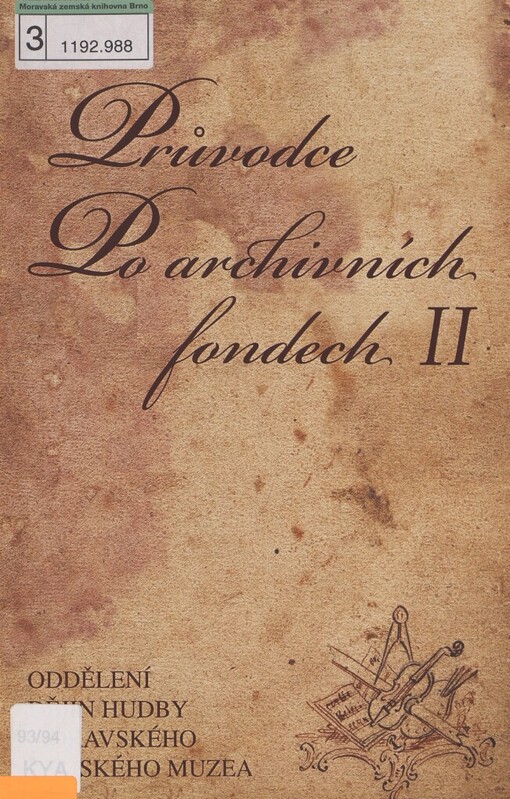 Moravská zemská knihovna Brno
3 1192.988
Průvodce
Po archivních
fondech II
ODDĚLENÍ
DĚJIN HUDBY
AVSKÉHO
93/94
KYA SKÉHO MUZEA